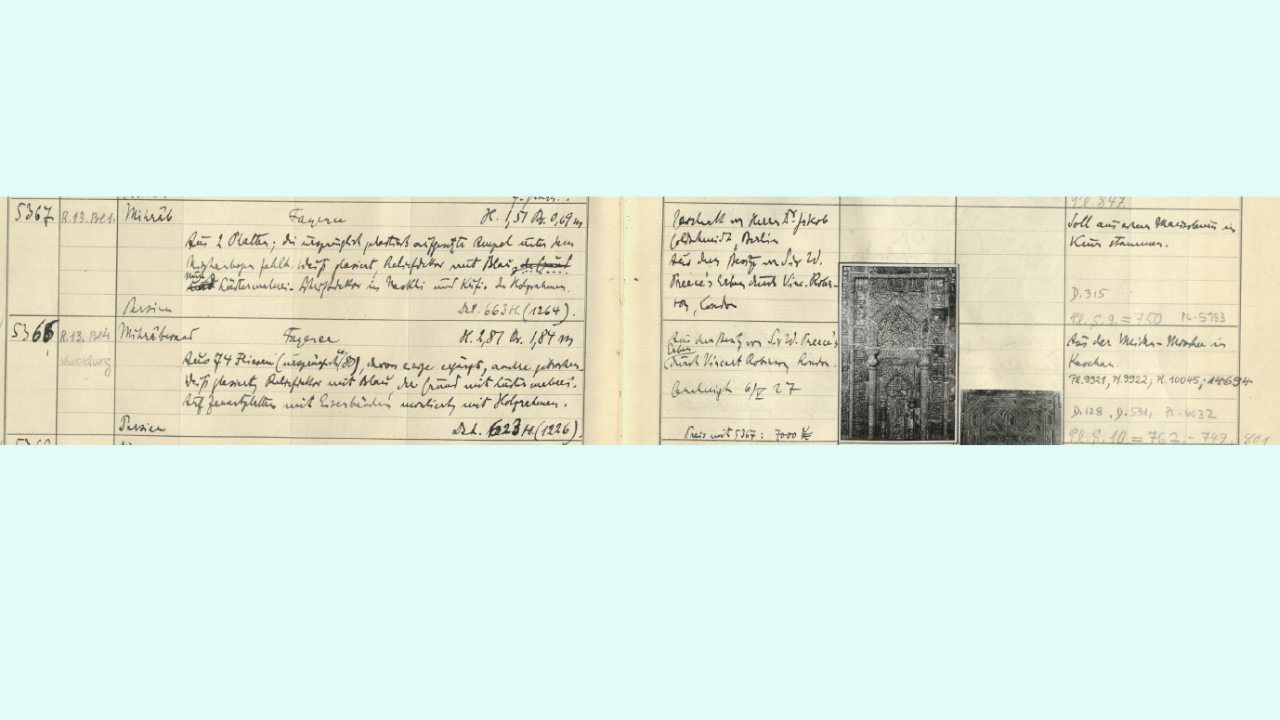 5367 R.13. Bl.1. Mihrâb Fayence H. 1,51 Br. 0,69 m
Aus 2 Platten; die ursprünglich plastisch aufgesetzte Ampel unter dem
fehlt. Weiß glasiert, Reliefdekor mit Blau,
und Lüstermalerei. in Naskhi und Kufi. Holzrahmen.
Persien Dat. 663 H. (1264).
5366 R.13. Bl.1 Mihrâbwand Fayence H. 2,81 Br. 1,84 m
Aus 74 Fliesen (ursprünglich 80), davon einige ergänzt, andre gebrochen.
Weiß glasiert, Reliefdekor mit Blau, der Grund mit Lüstermalerei.
Auf Zementplatten mit montiert mit Holzrahmen.
Persien Dat. 623 H. (1226).
von Herrn Dr. Jakob
Goldschmidt, Berlin
Aus dem Besitz von Sir W.
Preece's Erben durch Vinc. Robin-
son, London
Aus dem Besitz von Sir W. Preece's
Erben
durch Vincent Robinson London.
6/V 27
Preis mit 5367: 7000 £
Pl. 847
Soll aus einem in
Kum stammen.
D.315
Pl. S. 9. = 750 PL. 5783
Aus der Meidan-Moschee in
Kaschan.
Pl. 9921, Pl. 9922, Pl. 10045, 14694
D.128, D.531, Pl. 6032
Pl. S. 10 = 762 - 749, 801